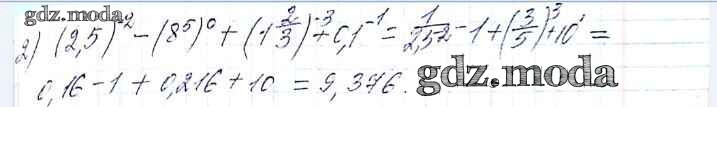 gdz.moda
2) (2,5)⁻² − (8⁵)⁰ + (1 2/3)⁻³ + 0,1⁻¹ = 1/2,5² − 1 + (3/5)³ + 10¹ =
0,16 − 1 + 0,216 + 10 = 9,376.
gdz.moda